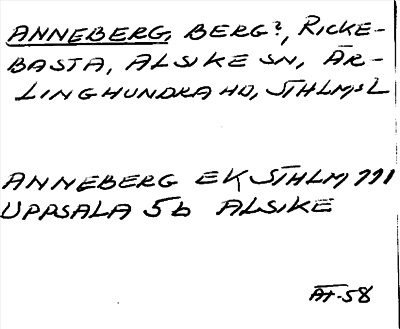 ANNEBERG, BERG?, RICKE-
BASTA, ALSIKE SN, ÄR-
LINGHUNDRA HD, STHLMS L
ANNEBERG EK STHLM 771
UPPSALA 5b ALSIKE
AH-58